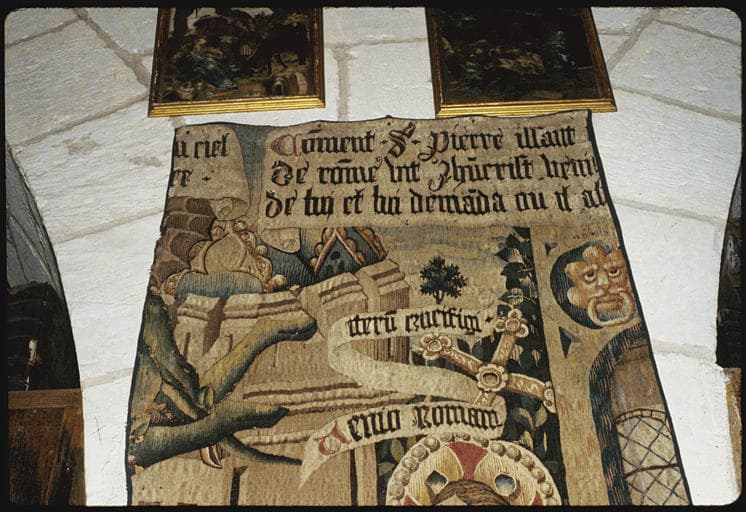 u ciel
re ·
Coment · S · Pierre issant
de rome vit Jhucrist veni
de lui et lui demada ou il al
iteru crucifigi ·
Venio Romam